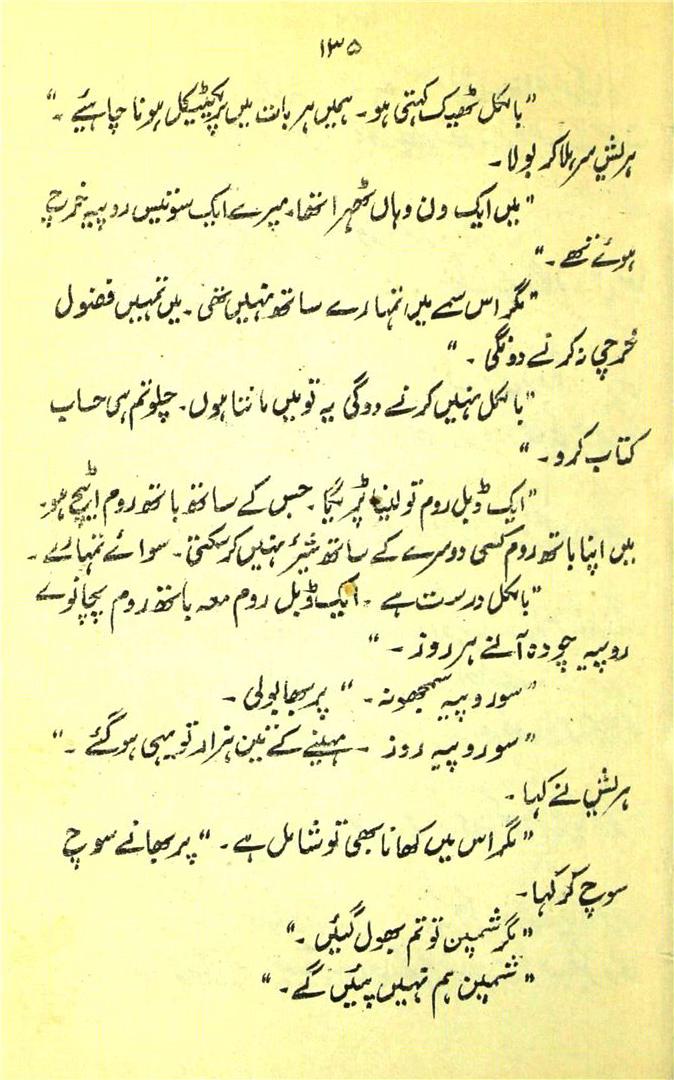 ۱۳۵
"بالکل ٹھیک کہتی ہو۔ ہمیں ہر بات میں پریکٹیکل ہونا چاہئیے۔"
ہریش سر ہلا کر بولا۔
"میں ایک دن وہاں ٹھہرا تھا۔ میرے ایک سو تیس روپیہ خرچ
ہوئے تھے۔"
"مگر اس سمے میں تمہارے ساتھ نہیں تھی۔ میں تمہیں فضول
خرچی نہ کرنے دونگی۔"
"بالکل نہیں کرنے دوگی یہ تو میں مانتا ہوں۔ چلو تم ہی حساب
کتاب کرو۔"
"ایک ڈبل روم تو لینا پڑیگا۔ جس کے ساتھ باتھ روم اٹیچ ہو۔
میں اپنا باتھ روم کسی دوسرے کے ساتھ شیئر نہیں کر سکتی۔ سوائے تمہارے۔
"بالکل درست ہے۔ ایک ڈبل روم معہ باتھ روم پچانوے
روپیہ چودہ آنے ہر روز۔"
"سو روپیہ سمجھو نہ۔" پربھا بولی۔
"سو روپیہ روز۔ مہینے کے تین ہزار تو یہی ہو گئے۔"
ہریش نے کہا۔
"مگر اس میں کھانا بھی تو شامل ہے۔" پربھا نے سوچ
سوچ کر کہا۔
"مگر شمپین تو تم بھول گئیں۔"
"شمپین ہم نہیں پئیں گے۔"